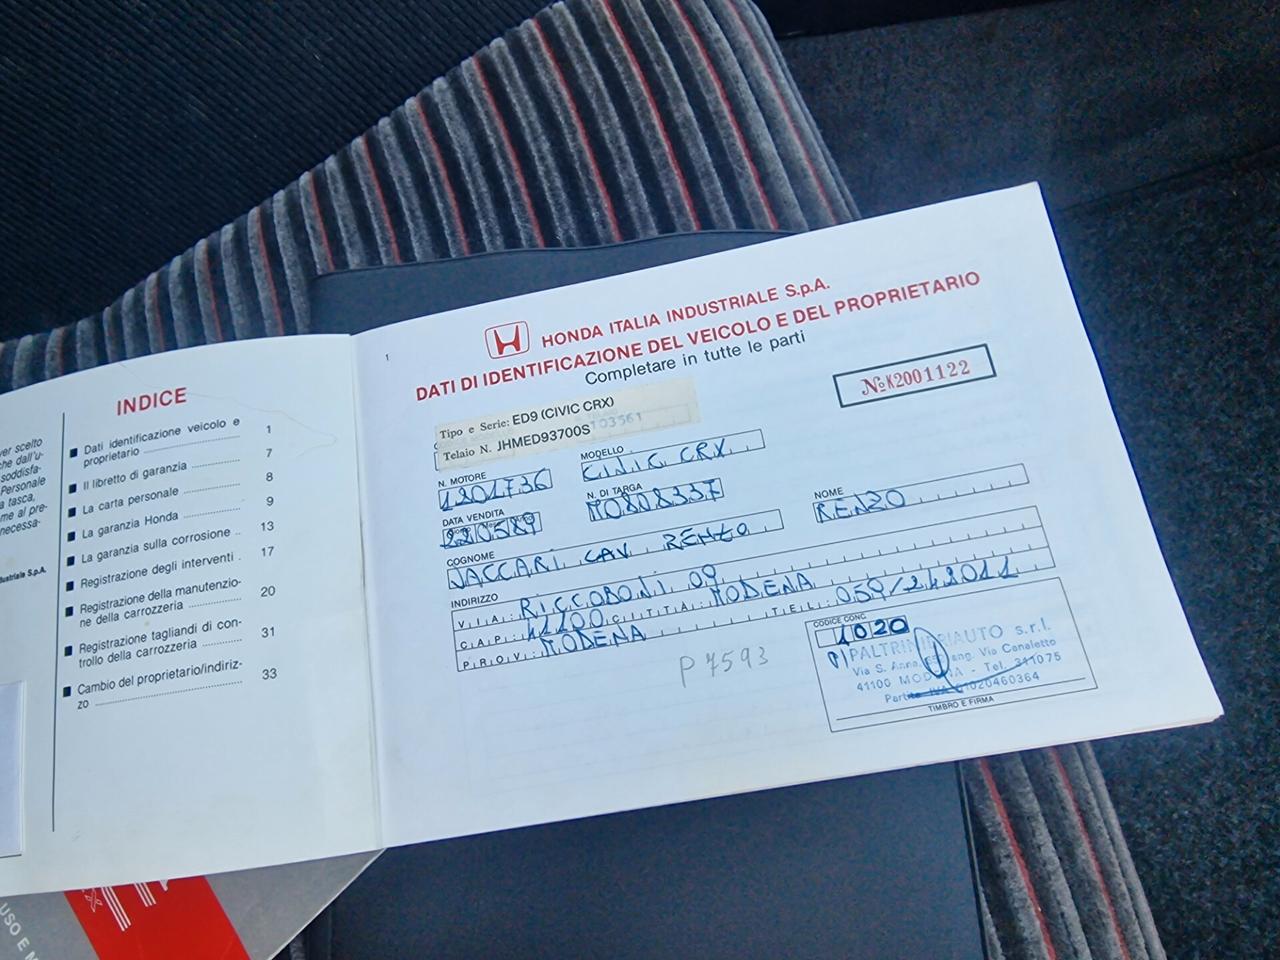 er scelto
he dall'u-
soddisfa-
Personale
a tasca,
me al pre-
necessa-
dustriale S.p.A.
INDICE
Dati identificazione veicolo e
proprietario 1
Il libretto di garanzia 7
La carta personale 8
La garanzia Honda 9
La garanzia sulla corrosione 13
Registrazione degli interventi 17
Registrazione della manutenzio-
ne della carrozzeria 20
Registrazione tagliandi di con-
trollo della carrozzeria 31
Cambio del proprietario/indiriz-
zo 33
USO E M
1
HONDA ITALIA INDUSTRIALE S.p.A.
DATI DI IDENTIFICAZIONE DEL VEICOLO E DEL PROPRIETARIO
Completare in tutte le parti
No K2001122
Tipo e Serie: ED9 (CIVIC CRX)
Telaio N. JHMED93700S103561
N. MOTORE
1201736
MODELLO
CIVIC CRX
DATA VENDITA
220589
N. DI TARGA
MO808337
COGNOME
VACCARI CAV. RENZO
NOME
RENZO
INDIRIZZO
VIA: RICCOBONI 09
CAP: 41100 CITTÀ: MODENA TEL: 059/242011
PROV: MODENA
P 7593
CODICE CONC.
1020
Via S. Anna, ang. Via Canaletto
41100 MODENA - Tel. 311075
Partita IVA 01020460364
TIMBRO E FIRMA